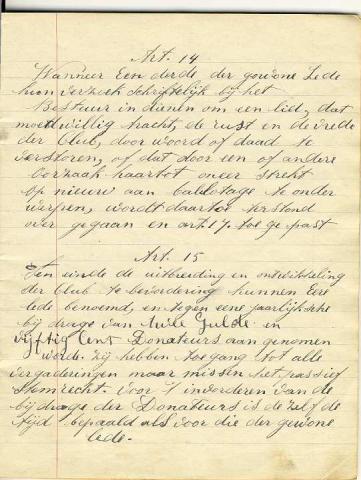 Art. 14
Wanneer Een derde der gewone Lede
hun verzoek schriftelijk bij het
Bestuur in dienen om een lid, dat
moedwillig tracht, de rust en de vrede
der Club, door woord of daad te
verstoren, of dat door een of andere
oorzaak haar tot oneer strekt
op nieuw aan balotage te onder
werpen, wordt daartoe terstond
over gegaan en art 17 toe ge past
Art. 15
Ten einde de uitbreiding en ontwikkeling
der Club te bevordering kunnen Eere
lede benoemd, en tegen eene jaarlijksche
bij drage van Twee Gulde en
vijftig Cent Donateurs aan genomen
worde. Zij hebben toegang tot alle
vergaderingen maar missen het passief
Stemrecht. voor 't invorderen van de
bij drage der Donateurs is de zelf de
tijd bepaald als voor die der gewone
lede.